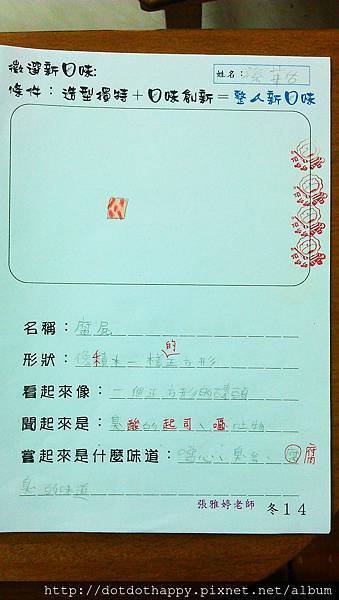 徵選新口味:
姓名：
條件：造型獨特＋口味創新＝整人新口味
名稱：腐屍
形狀：像積木一樣的正方形
看起來像：一個正方形的罐頭
聞起來是：臭酸的起司、嘔吐物
嘗起來是什麼味道：噁心、臭臭、腐
臭的味道
張雅婷老師 冬14
http://dotdothappy.pixnet.net/album